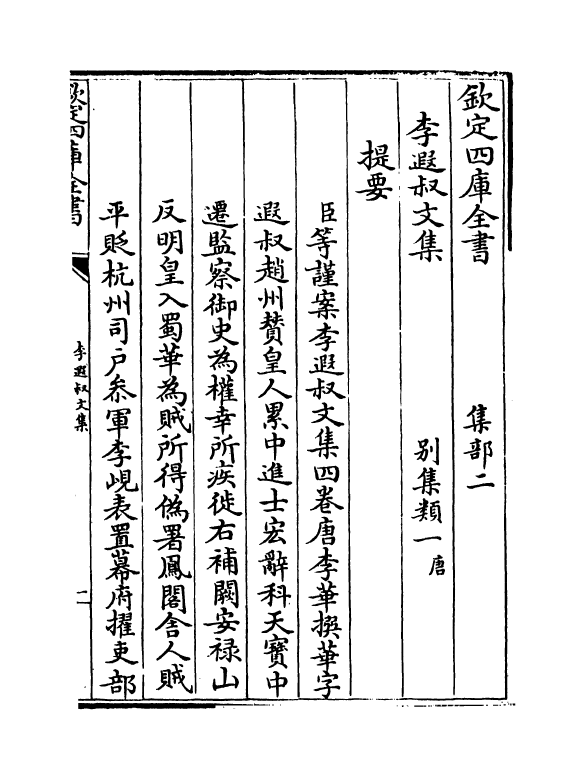 欽定四庫全書　集部二
李遐叔文集　別集類一唐
提要
臣等謹案李遐叔文集四卷唐李華撰華字
遐叔趙州贊皇人累中進士宏辭科天寶中
遷監察御史為權幸所疾徙右補闕安禄山
反明皇入蜀華為賊所得僞署鳳閣舍人賊
平貶杭州司戶叅軍李峴表置幕府擢吏部
欽定四庫全書
李遐叔文集
一